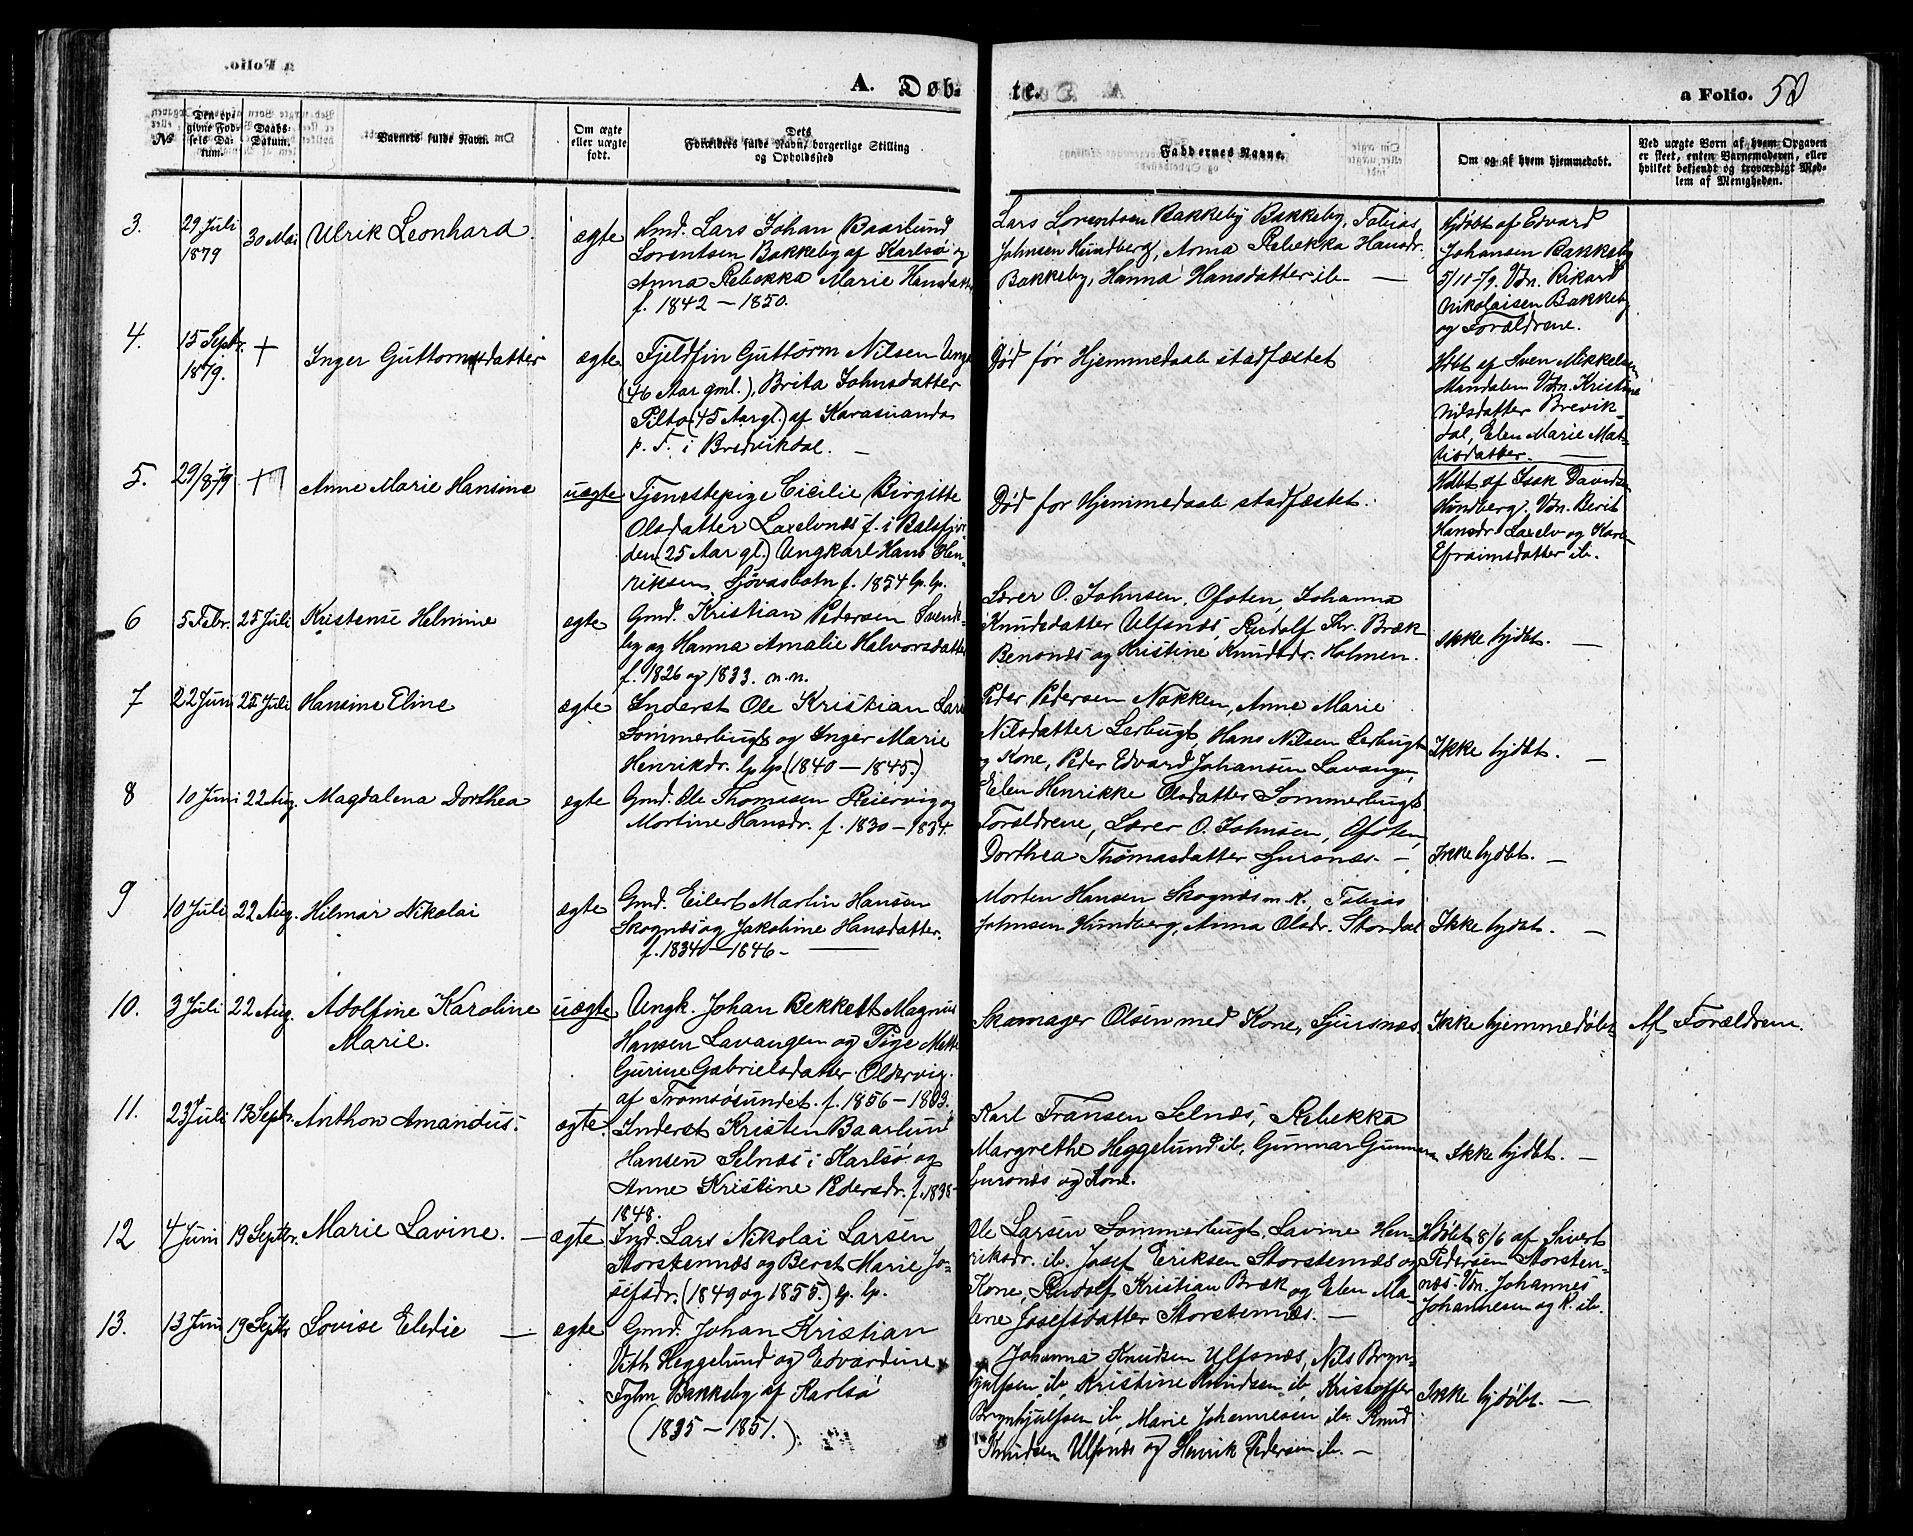 A. Døb- te.
a Folio. 52
№
Den opgivne Fødsels Datum.
Daabs-Datum.
Barnets fulde Navn.
Om ægte eller uægte født.
Dets Forældres fulde Navn, borgerlige Stilling og Opholdssted
Faddernes Navne.
Om og af hvem hjemmedøbt.
Ved uægte Børn af hvem Opgaven er skeet, enten Barnemoderen, eller hvilket bekjendt og troværdigt Medlem af Menigheden.
3. 29 Juli 1879 30 Mai Ulrik Leonhard. ægte
Gmd. Lars Johan Baarlund
Lorentsen Bakkeby af Karlsø og
Anna Rebekka Marie Hansdatter
f. 1842 – 1850.
Lars Lorentsen Bakkeby Bakkeby, Tobias
Johnsen Hundberg, Anna Rebekka Hansdr.
Bakkeby, Hanna Hansdatter ib. —
Hjdøbt af Edvard
Johansen Bakkeby
5/11-79. Vdn. Rikard
Nikolaisen Bakkeby
og Forældrene.
4. 15 Septbr. 1879. + Inger Guttormsdatter ægte
Fjeldfin Guttorm Nilsen Unga
(46 Aar gml.), Brita Johnsdatter
Pilto (45 Aar gl.) af Karasuando
p. T. i Bredvikdal. —
Død før Hjemmedaab stadfæstet
Hdbt af Sven Mikkelsen
Mandalen Vdn. Kristine
Nilsdatter Brevik-
dal, Elen Marie Mat-
tisdatter. —
5. 29/8-79 + Anne Marie Hansine uægte
Tjenestepige Cicilie Birgitte
Olsdatter Laxelvnæs f. i Balsfjor-
den (25 Aar gl.) Ungkarl Hans Hen-
riksen, Sjøvasbotn f. 1854 lp. lp.
Død for Hjemmedaab stadfæstet.
Hdbt af Isak Davids
Hundberg. Vdn. Berit
Hansdr Laxelv og Kare
Efraimsdatter ib.
6 5 Febr. 25 Juli Kristense Helmine ægte
Gmd. Kristian Pedersen Svensk-
by og Hanna Amalie Halvorsdatter
f. 1826 og 1833. n. n.
Lærer O. Johnsen, Ofoten, Johanna
Knudsdatter Ulfsnæs, Rudolf Kr. Bræk
Benonæs og Kristine Knudsdr. Holmen.
Ikke hjdbt. —
7 22 Juni 25 Juli Hansine Eline ægte
Inderst Ole Kristian Lars
Sommerbugt og Inger Marie
Henrikdr. lp lp (1840 – 1845.)
Peder Pedersen Nakken, Anne Marie
Nilsdatter Lerbugt, Hans Nilsen Lerbugt
og Kone, Peder Edvard Johansen Lavangen,
Elen Henrikke Olsdatter Sommerbugt
Ikke hjdbt. —
8 10 Juni 22 Aug. Magdalena Dorthea ægte
Gmd. Ole Thomasen Reiervig og
Mortine Hansdr. f. 1830 – 1834.
Forældrene, Lærer O. Johnsen, Ofoten,
Dorthea Thomasdatter Sjursnæs. —
Ikke hjdbt. —
9 10 Juli 22 Aug. Hilmar Nikolai ægte
Gmd. Eilert Martin Hansen
Skognæs og Jakobine Hansdatter.
f. 1840 – 1846 –
Morten Hansen Skognæs m K., Tobias
Johnsen Hundberg, Anna Olsdr. Stordal
Ikke hjdbt. —
10. 3 Juli 22 Aug. Adolfine Karoline
Marie. uægte
Ungk. Johan Bekkett Magnus
Hansen Lavangen og Pige Mette
Gurine Gabrielsdatter Oldervig
af Tromsøsundet. f. 1856 – 1863.
Skomager Olsen med Kone, Sjursnæs
Ikke hjemmedøbt
Af Forældren.
11. 23 Juli 13 Septbr. Anthon Amandus. ægte.
Inderst Kristen Baarlund
Hansen Selnæs i Karlsø og
Anne Kristine Pedersdr. f. 1838–
1848.
Karl Fransen Selnæs, Rebekka
Margrethe Heggelund ib, Gunnar Gunnarsen
Sjursnæs og Kone.
Ikke hjdbt. —
12 4 Juni 19 Septbr. Marie Lavine. — ægte
Ind. Lars Nikolai Larsen
Storstennæs og Beret Marie Jo-
sefsdr. (1849 og 1855.) lp. lp.
Ole Larsen Sommerbugt, Lavine Hen-
riksdr. ib. Josef Eriksen Storstennæs og
Kone, Rudolf Kristian Bræk og Elen Ma-
lene Josefsdatter Storstennæs. —
Hdøbt 8/6 af Sivert
Pedersen Storsten-
næs. Vdn. Johannes
Johannesen og K. ib.
13. 13 Juni 19 Septbr Lovise Eledie — ægte
Gmd. Johan Kristian
Vith Heggelund og Edvardine
Fylm Bakkeby af Karlsø
(1835 – 1851.)
Johanna Knudsen Ulfsnæs, Nils Bryn-
hjulfsen ib, Kristine Knudsen ib, Kristoffer
Brynhjulfsen ib, Marie Johannesen ib. Knud
Knudsen Ulfsnæs og Henrik Pedersen ib. —
Ikke hjdøbt. —